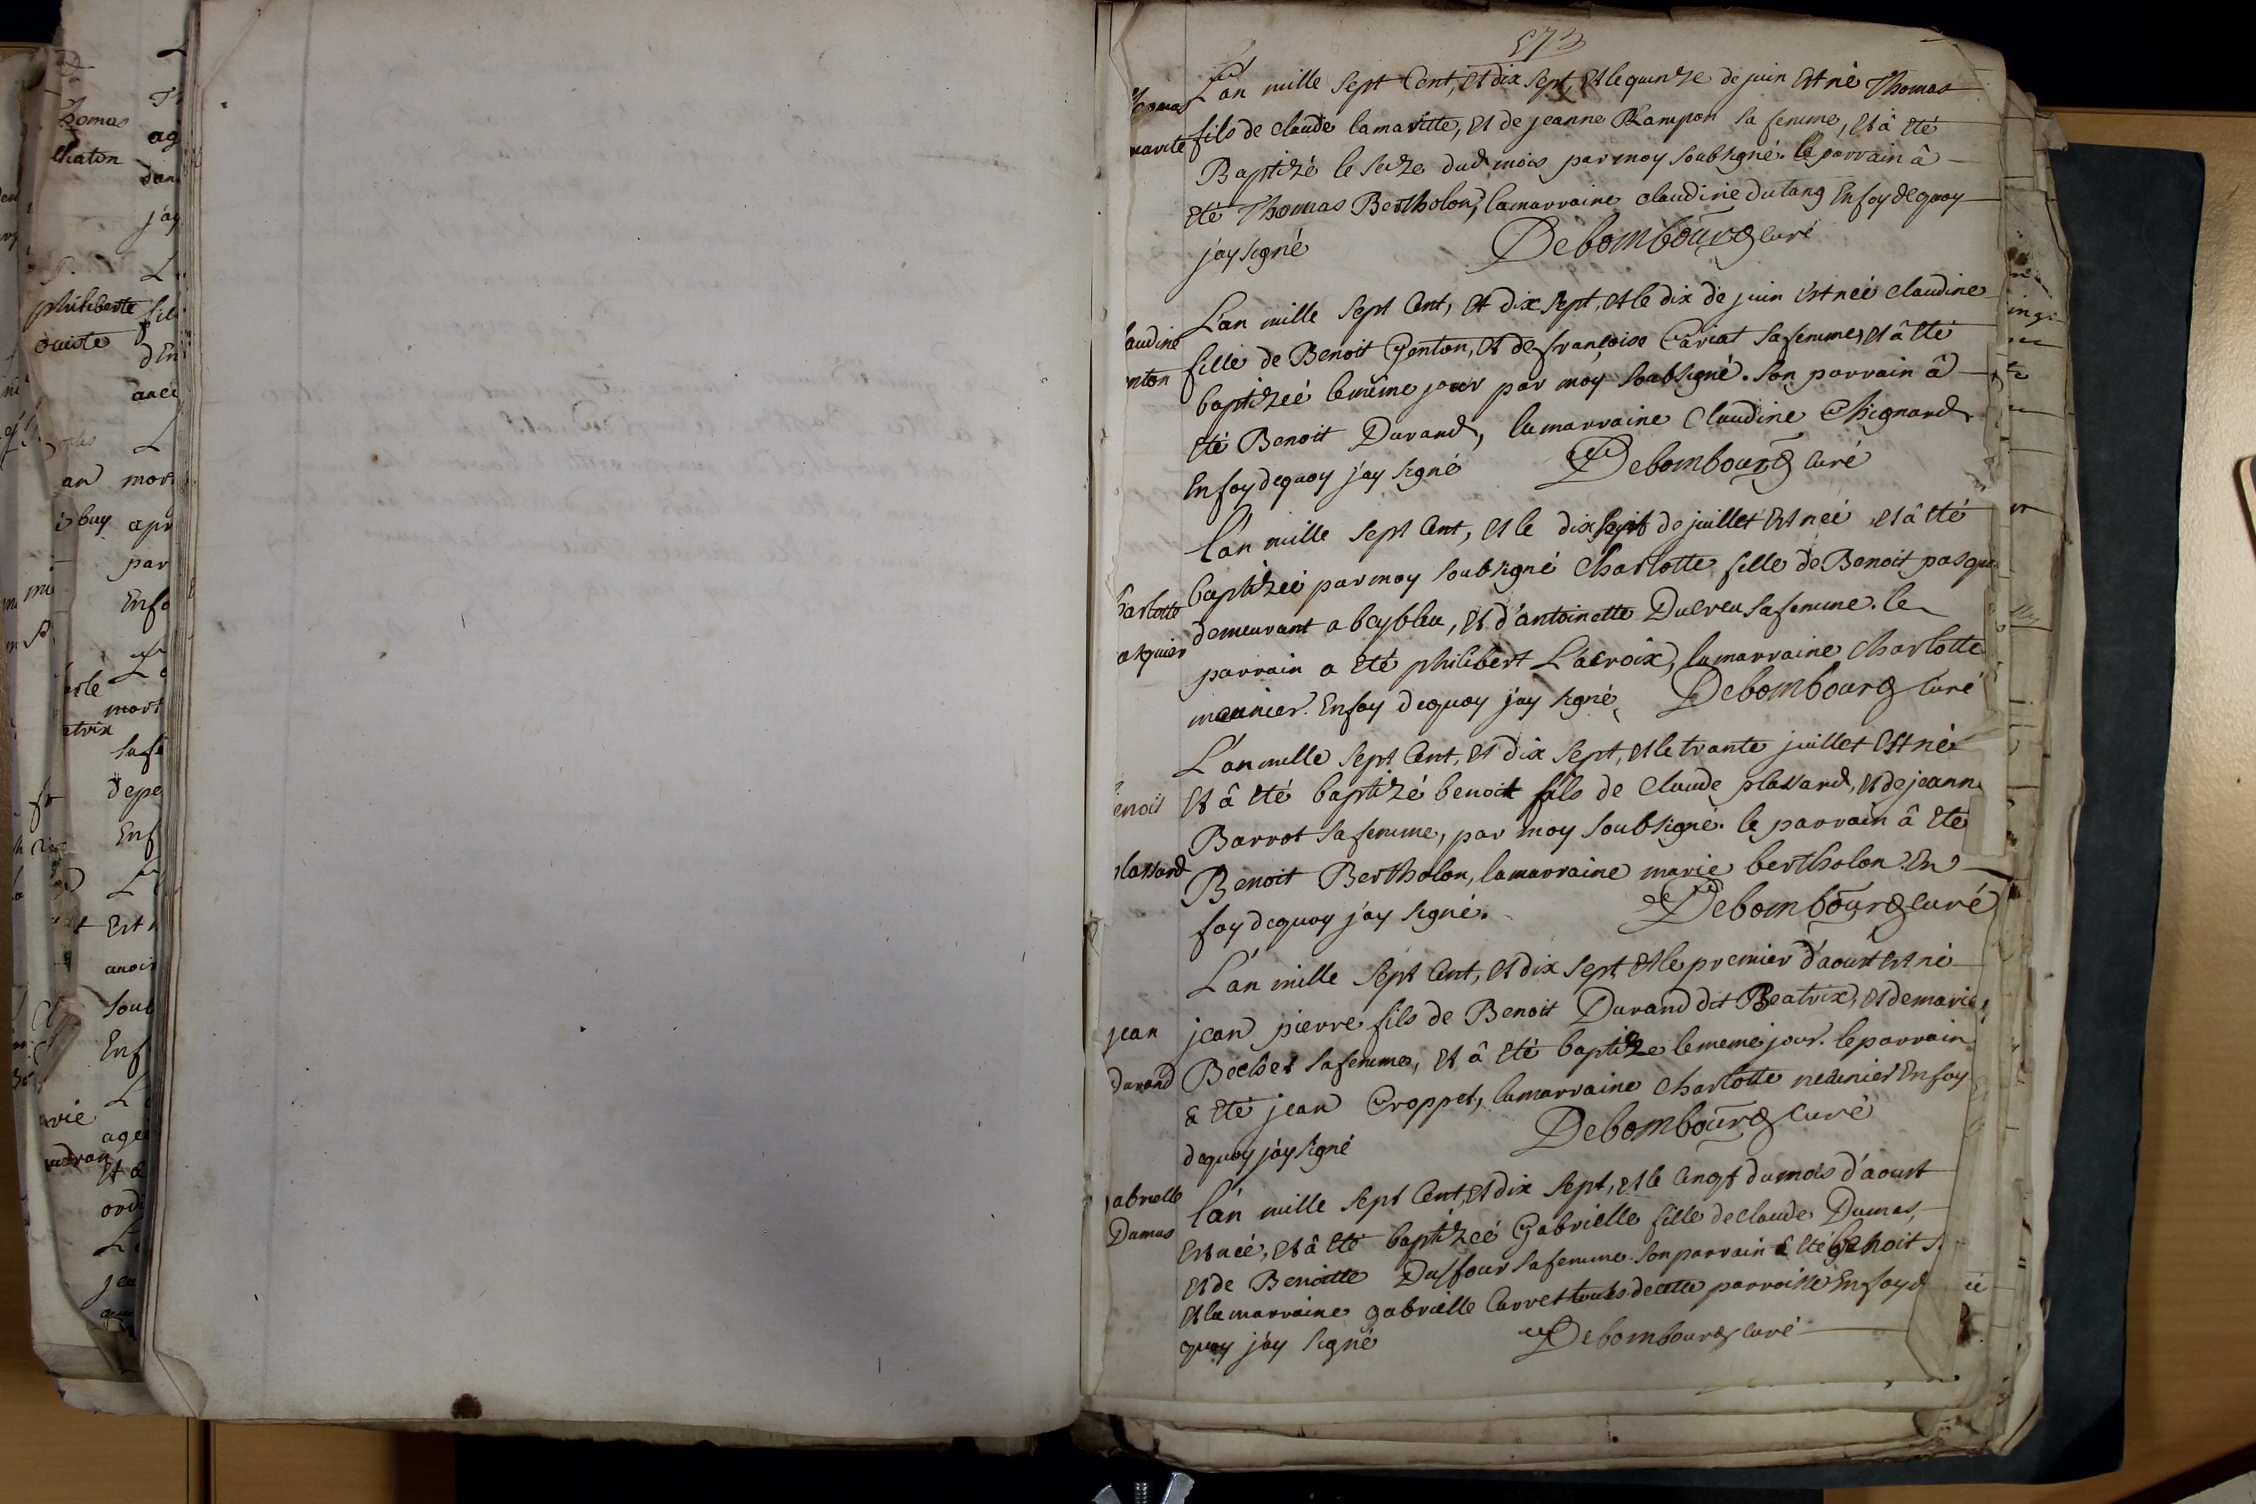 Thomas
chaton
ag
dan
j'ay
philiberte
fil
mort
buy
apr
par
Enfo
mort
depe
Enf
Est
soub
Enf
age
573
L'an mille sept Cent, Et dix sept, Et le quinze de juin Est né Thomas
fils de claude lamavitte, Et de jeanne Rampon sa femme, Et â Eté
Baptizé le seize dud mois par moy soubsigné. le parrain â
Eté Thomas Bertholon, la marraine claudine dutang En foy dequoy
j'ay signé Debombourg curé
audine
nton
L'an mille sept Cent, Et dix sept, Et le dix de juin Est neé claudine
fille de Benoit Genton, Et de françoise Cariat sa femme, Et â Eté
baptizeé le même jour par moy soubsigné. son parrain â
Eté Benoit Durand, la marraine Claudine Chignard
En foy dequoy j'ay signé Debombourg curé
harlotte
asquier
L'an mille sept Cent, Et le dix sept de juillet Est neé Et â Eté
baptizeé par moy soubsigné Charlotte fille de Benoit pasqui
demeurant a beybleu, Et d'antoinette Ducreu sa femme. le
parrain a Eté philibert Lacroix, la marraine Charlotte
meunier. En foy dequoy j'ay signé Debombourg Curé
enoit
lassard
L'an mille sept Cent, Et dix sept, Et le trante juillet Est né
Et â Eté baptizé benoit fils de Claude plassard, Et de jeanne
Barrot sa femme, par moy soubsigné. le parrain â Eté
Benoit Bertholon, la marraine marie bertholon. En
foy dequoy j'ay signé. Debombourg curé
jean
durand
L'an mille sept Cent, Et dix sept Et le premier d'aoust Est né
jean pierre fils de Benoit Durand dit Beatrix, Et de marie
Bechet sa femme, Et â Eté baptize le meme jour. le parrain
a Eté jean Croppet, la marraine charlotte meunier En foy
dequoy j'ay signé Debombourg curé
abrielle
Dumas
L'an mille sept Cent, Et dix sept, Et le vingt du mois d'aoust
Est neé, Et â Eté baptizeé Gabrielle fille de claude Dumas,
Et de Benoitte Duffour sa femme. son parrain a Eté Benoit
Et la marraine gabrielle Carret touts de cette parroisse En foy d
quoy j'ay signé Debombourg curé